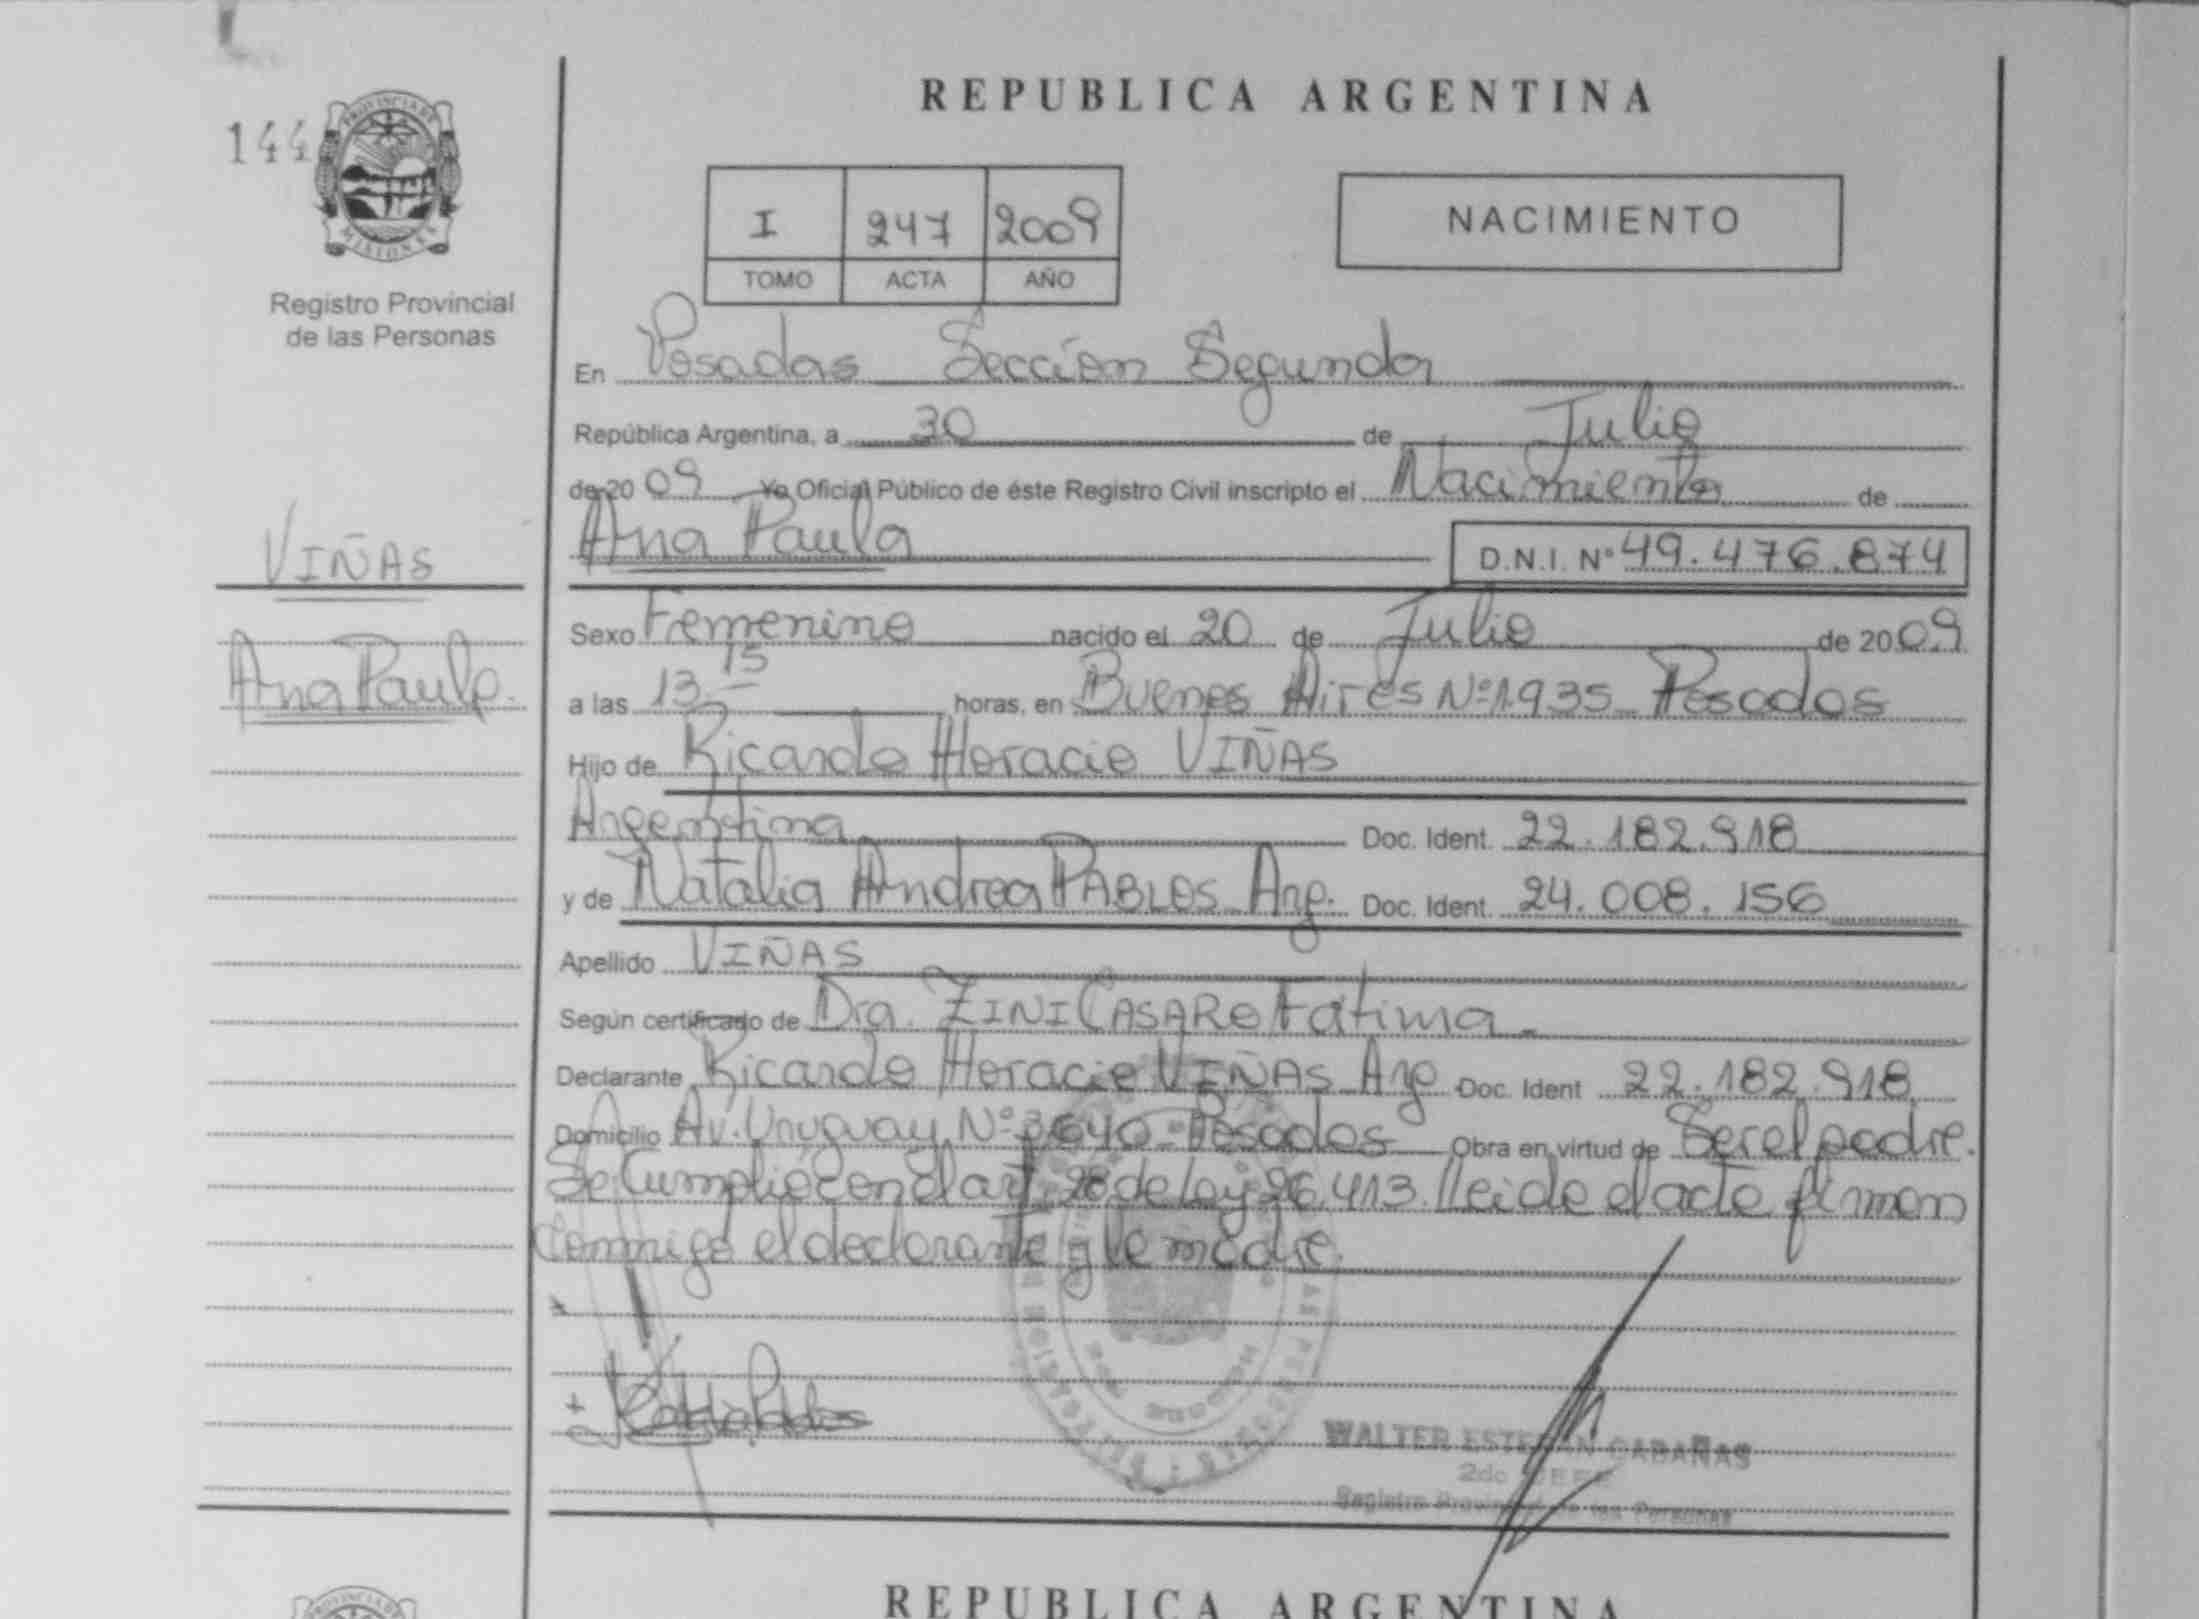 REPUBLICA ARGENTINA
144
PROVINCIA DE
MISIONES
Registro Provincial
de las Personas
I 247 2009
TOMO ACTA AÑO
NACIMIENTO
En Posadas Sección Segunda
República Argentina, a 30 de Julio
de 20 09 Yo Oficial Público de éste Registro Civil inscripto el Nacimiento de
Ana Paula D.N.I. Nº 49.476.874
VIÑAS
Ana Paula.
Sexo Femenino nacido el 20 de Julio de 20 09
a las 13.15 horas, en Buenos Aires Nº 1935 Posadas
Hijo de Ricardo Horacio VIÑAS
Argentina Doc. Ident. 22.182.918
y de Natalia Andrea PABLOS Arg. Doc. Ident. 24.008.156
Apellido VIÑAS
Según certificado de Dra. ZINI CASARO Fátima
Declarante Ricardo Horacio VIÑAS Arg Doc. Ident 22.182.918
Domicilio Av. Uruguay Nº 3640 - Posadas Obra en virtud de Ser el padre.
Se Cumplió con el art. 28 de Ley 26.413. Leida el acta firman
Conmigo el declarante y la madre.
WALTER ESTEBAN CABAÑAS
2do JEFE
Registro Provincial de las Personas
REPUBLICA ARGENTINA
PROVINCIA DE